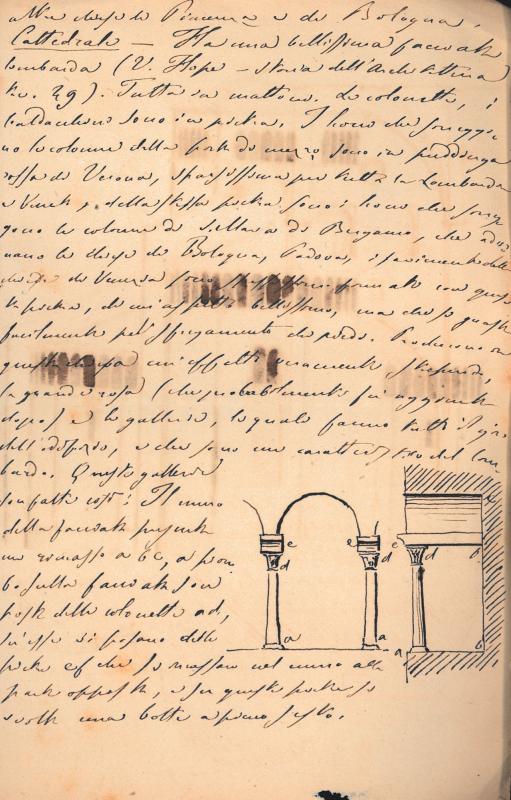 alle chiese di Piacenza e di Bologna.
Cattedrale — Ha una bellissima facciata
lombarda (V. Hope — Storia dell'Architettura
29). Tutta in mattoni. Le colonnette, i
sono in pietra. I leoni che sorreggo
no le colonne della porta di mezzo sono in puddinga
rossa di Verona, sparsissima per tutta la Lombardia
e della stessa pietra sono i leoni che sorreg
gono le colonne di S. Maria di Bergamo, che ador
nano le chiese di Bologna, Padova, i pavimenti delle
chiese di Venezia sono formati con questa
pietra, di un aspetto bellissimo, ma che si guasta
facilmente pel sfregamento dei piedi. Producono in
questa chiesa un effetto veramente stupendo
la grande rosa (che probabilmente fu aggiunta
dopo) e le gallerie, le quali fanno tutto il giro
dell'edificio, e che sono un carattere del lom
bardo. Queste gallerie
son fatte così: Il muro
della facciata presenta
un rimasso a bc, a piom
bo sulla facciata son
poste delle colonnette ad,
su esse si posano delle
pietre ef che si nel muro alla
parte opposta, e su queste pietre si
svolta una botte a pieno sesto.
e e
d d
a a
e d
a b